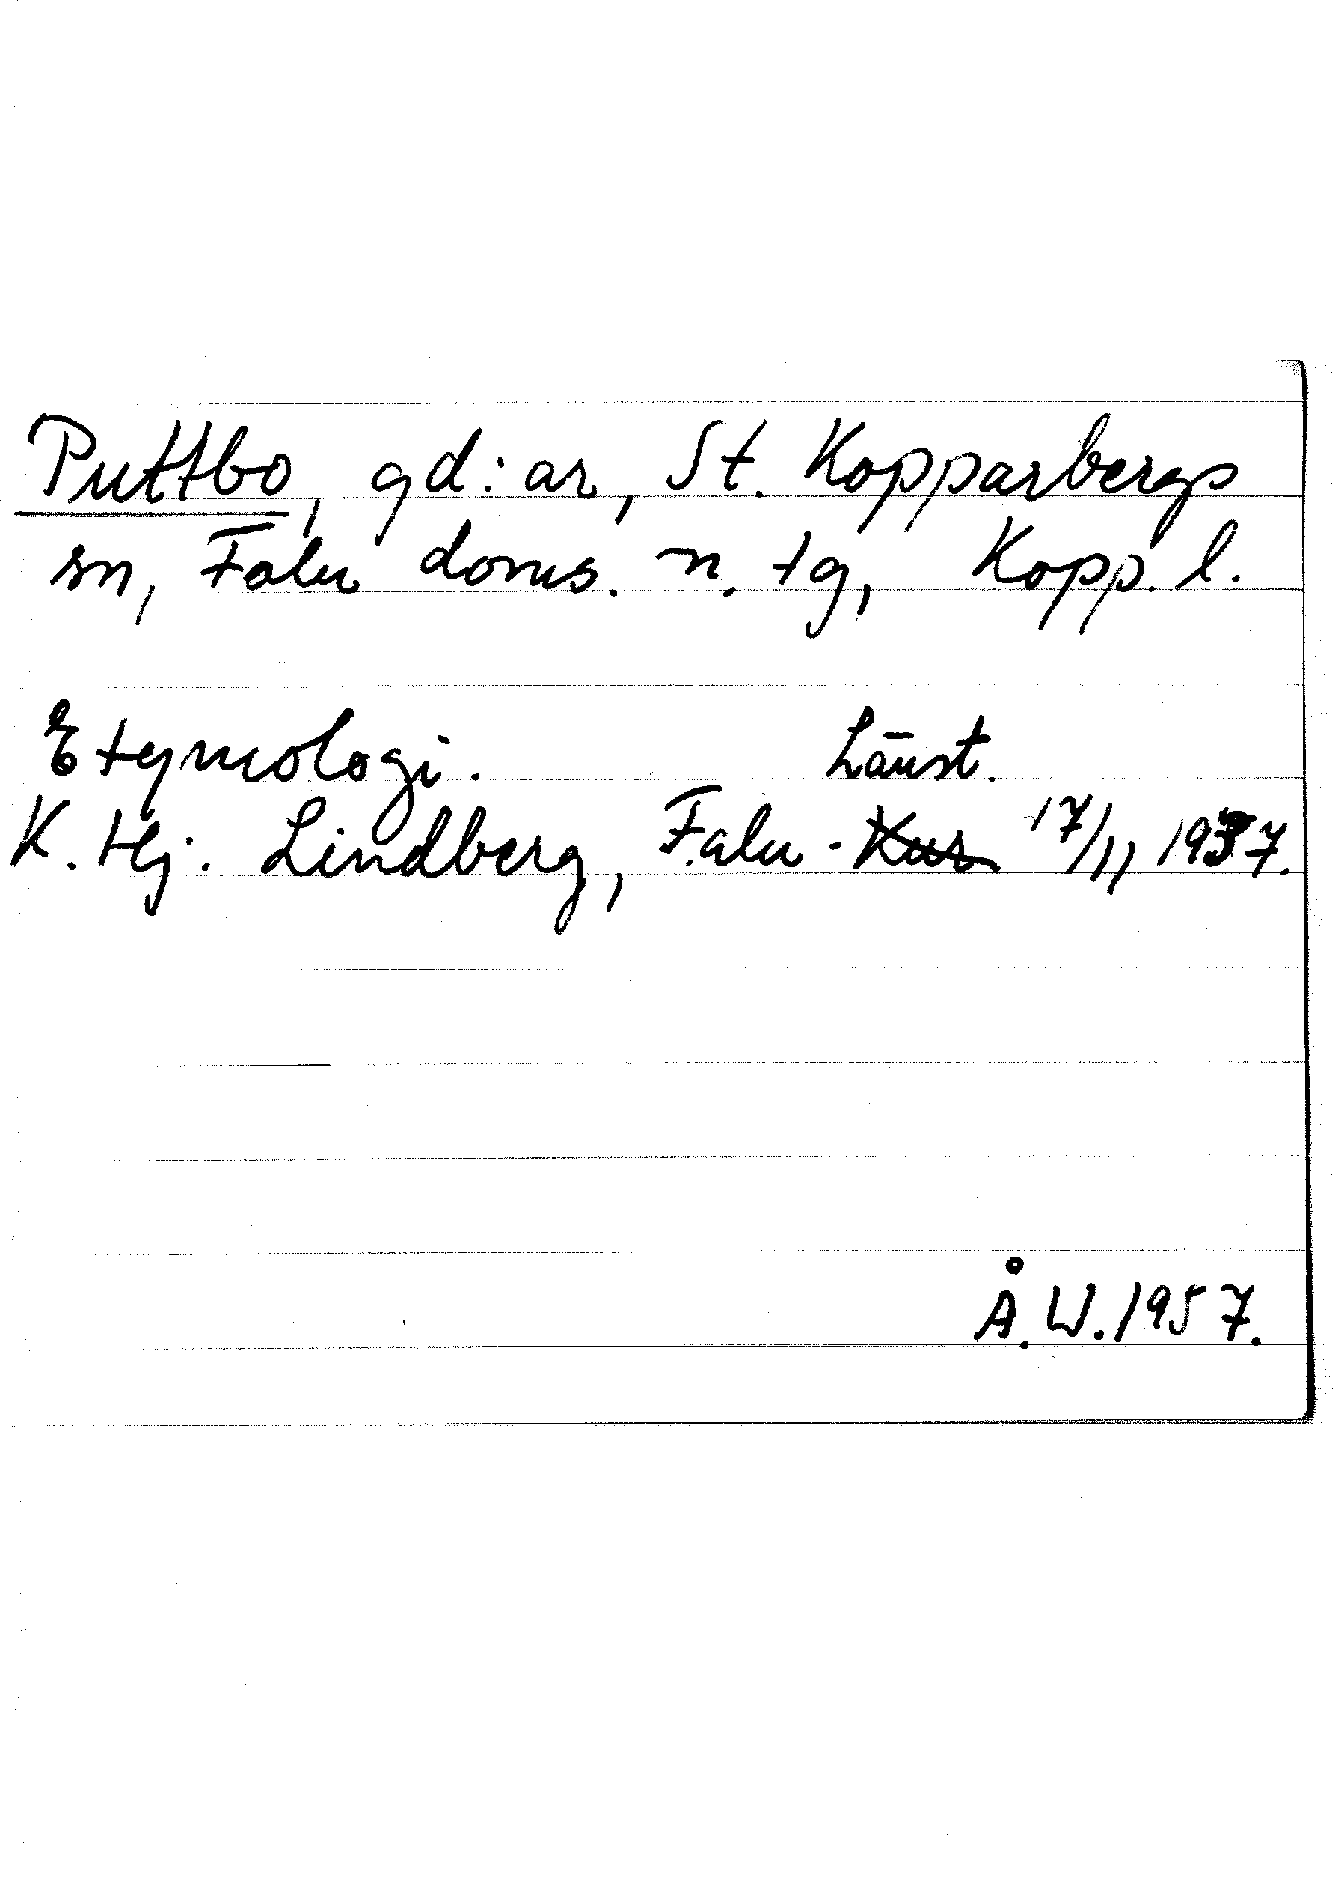 Puttbo, gd:ar, St. Kopparbergs
sn, Falu doms. n. tg, Kopp. l.
Etymologi. Länst.
K. Hj. Lindberg, Falu- 17/11 1937.
Å.W. 1957.